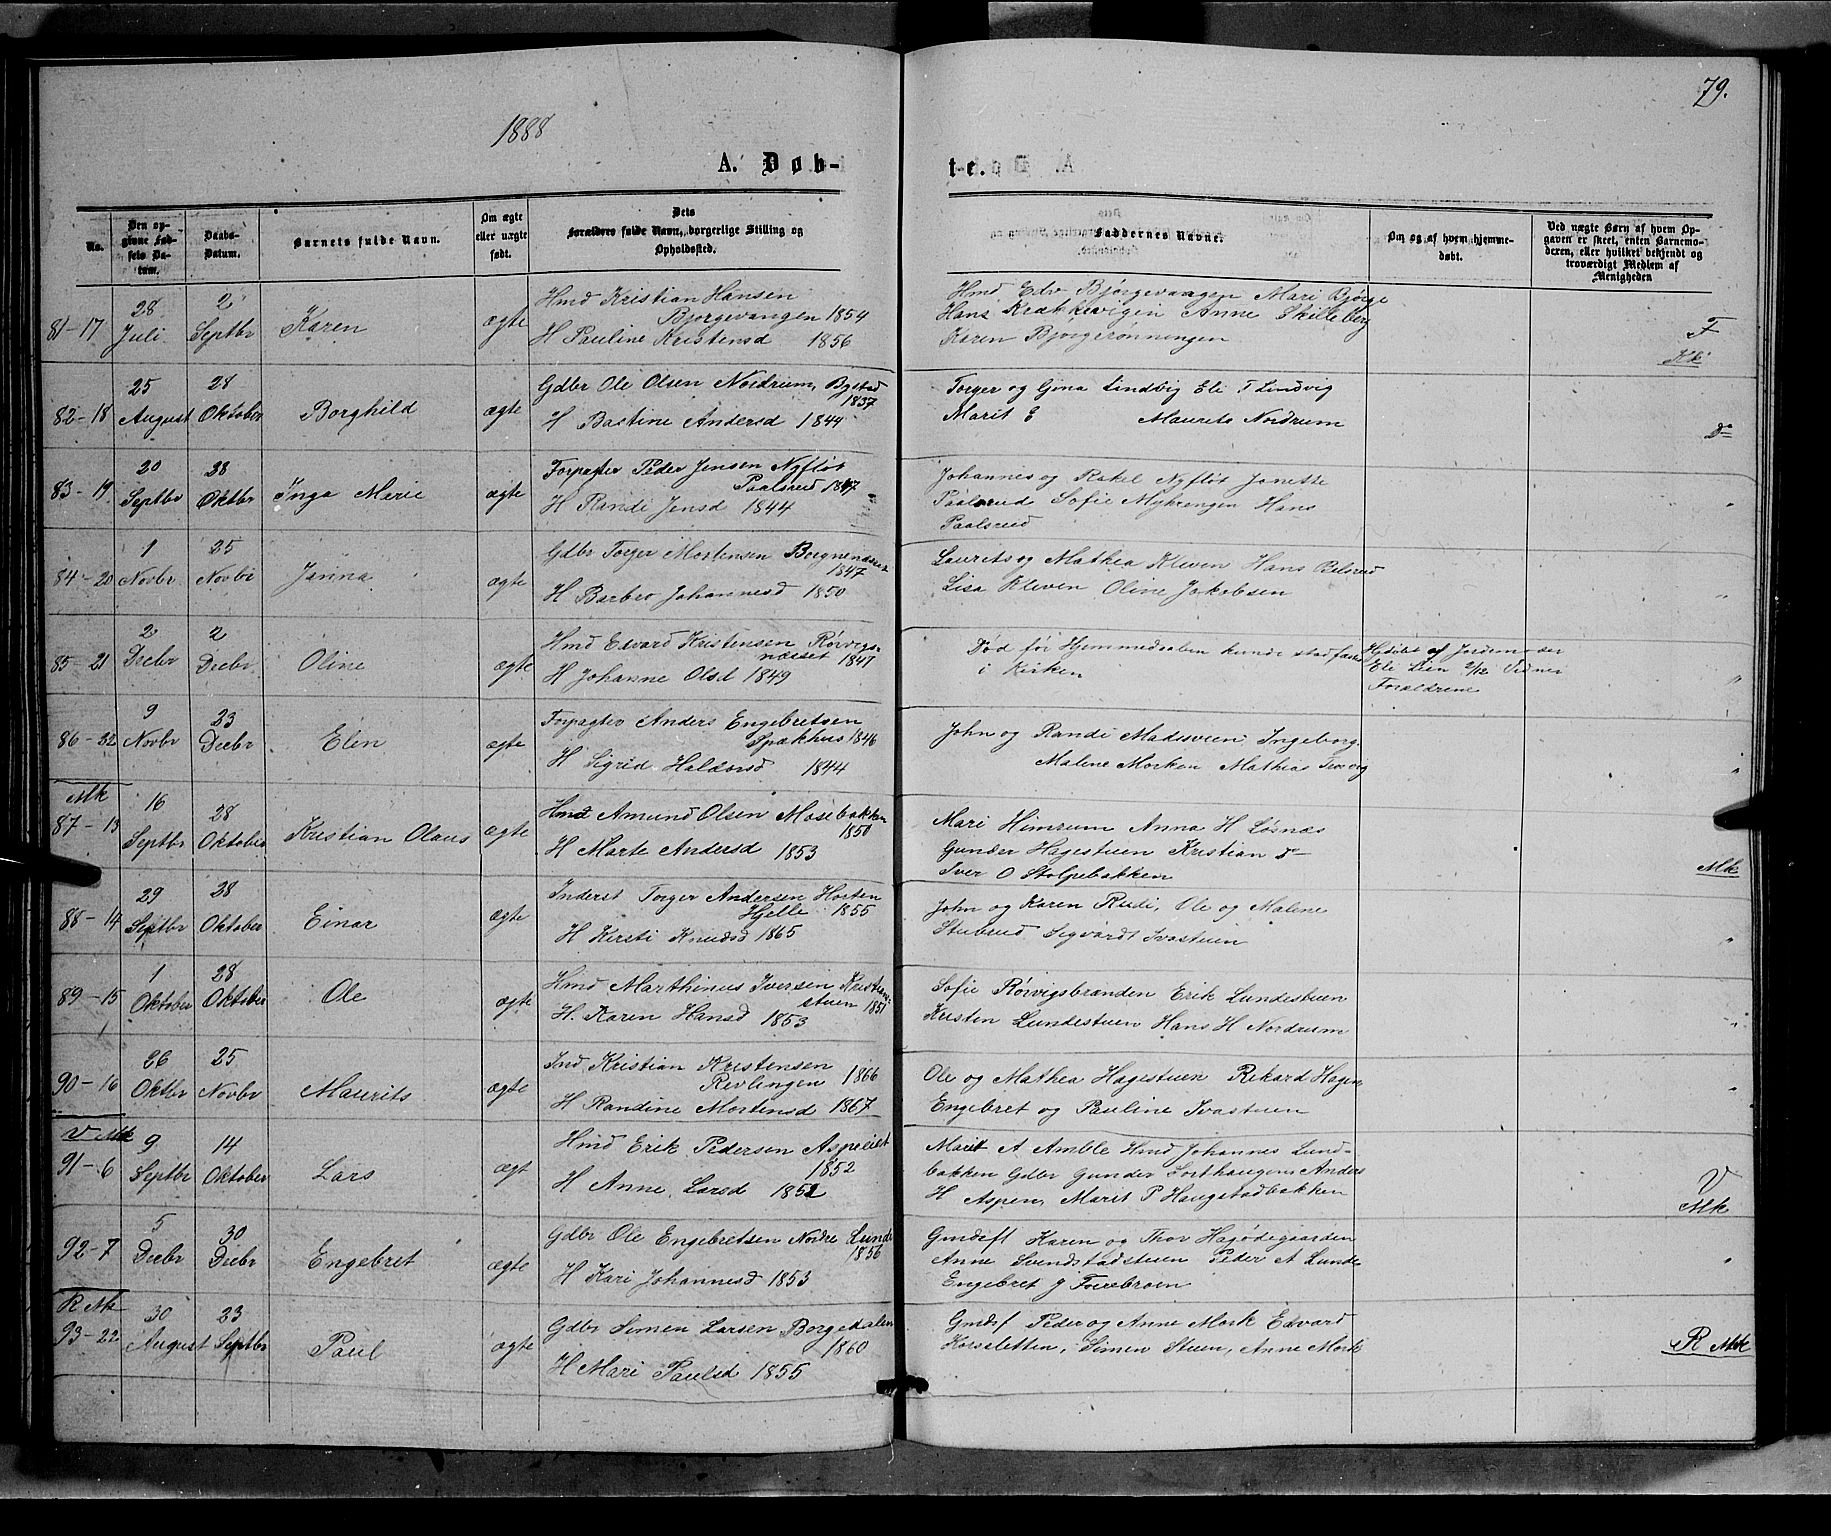 79.
1888
A. Døb-
te.
No.
Den opgivne Fødsels Datum.
Daabs-Datum.
Barnets fulde Navn.
Om ægte eller uægte født.
Dets Forældres fulde Navn, borgerlige Stilling og Opholdssted.
Faddernes Navne.
Om og af hvem hjemmedøbt.
Ved uægte Børn af hvem Opgaven er skeet, enten Barnemoderen, eller hvilket bekjendt og troværdigt Medlem af Menigheden
81-17 28 Juli 2 Septbr Karen ægte
Hmd Kristian Hansen
Bjorgevangen 1854
H Pauline Kristensd 1856
Hmd Edv Bjørgevaagen Mari Bjørge
Hans Krækkevigen Anne Skilleberg
Karen Bjorgerønningen
F
Kk
82-18 25 August 28 Oktober Borghild ægte
Gdbr Ole Olsen Nordrum, Bystad
1837
H Bastine Andersd 1844
Torger og Gina Lindvig Eli T Lindvig
Marit E Maurits Nordrum
Do
83-19 20 Septbr 28 Oktbr Inga Marie ægte
Forpagter Peder Jensen Nyfløt
Paalsrud 1847
H Randi Jensd 1844
Johannes og Rakel Nyfløt Janette
Paalsrud Sofie Myhrengen Hans
Paalsrud
"
84-20 1 Novbr 25 Novbr Janna ægte
Gdbr Torger Mortensen
1847
H Barbro Johannesd 1850
Laurits og Mathea Kleven Hans
Lisa Kleven Oline Jakobsen
"
85-21 2 Decbr 2 Decbr Oline ægte
Hmd Edvard Kristensen Rørvigs-
næsset 1847
H Johanne Olsd 1849
Død før Hjemmedaaben kunde stadfæstes
i Kirken
Hjdøbt af Jordemoder
Eli Lien 2/12 Vidner
Forældrene
"
86-22 9 Novbr 23 Decbr Elen ægte
Forpagter Anders Engebretsen
Spækhus 1846
H Sigrid Haldorsd 1844
John og Randi Madsveen Ingeborg
Malene Morken Mathias
"
Mk
87-13 16 Septbr 28 Oktober Kristian Olaus ægte
Hmd Amund Olsen Mosebakken
1850
H Marte Andersd 1853
Mari Himrum Anna H Løsnæs
Gunder Hagestuen Kristian Do
Iver O Stolpebakken
Mk
88-14 29 Septbr 28 Oktober Einar ægte
Inderst Torger Andersen Horten
Hjelle 1855
H Kersti Knudsd 1865
John og Karen Rudi, Ole og Malene
Stubrud Segvardt Ivastuen
"
89-15 1 Oktober 28 Oktober Ole ægte
Hmd Marthinus Iversen Kristians-
stuen 1851
H. Karen Hansd 1853
Sofie Rørvigsbranden Erik Lundestuen
Kristen Lundestuen Hans H Nordrum
90-16 26 Oktbr 25 Novbr Maurits ægte
Ind Kristian Kristensen
Revlingen 1866
H Randine Mortensd 1867
Ole og Mathea Hagestuen Rikard Hagen
Engebret og Pauline Ivastuen
"
V Mk
91-6 9 Septbr 14 Oktober Lars ægt
Hmd Erik Pedersen Aspeeiet
1852
H Anne Larsd 1852
Marit A Amble Hmd Johannes Lund-
bakken Gdbr Gunder Lorthaugen Anders
H Aspen, Marit P Haugstadbakken
V
Mk
92-7 5 Decbr 30 Decbr Engebret ægte
Gdbr Ole Engebretsen Nordre Lunde
1856
H Kari Johannesd 1853
Gmdsf Karen og Thor Hagødegaarden
Anne Svendstadstuen Peder A Lunde
Engebret J Toirebroen
"
R Mk
93-22 30 August 23 Septbr Paul ægte
Gdbr Simen Larsen Borgedalen
1860
H Mari Paulsd 1855
Gmdsf Peder og Anne Mork Edvard
Korsletten, Simen Stuen, Anne Mork
R Mk